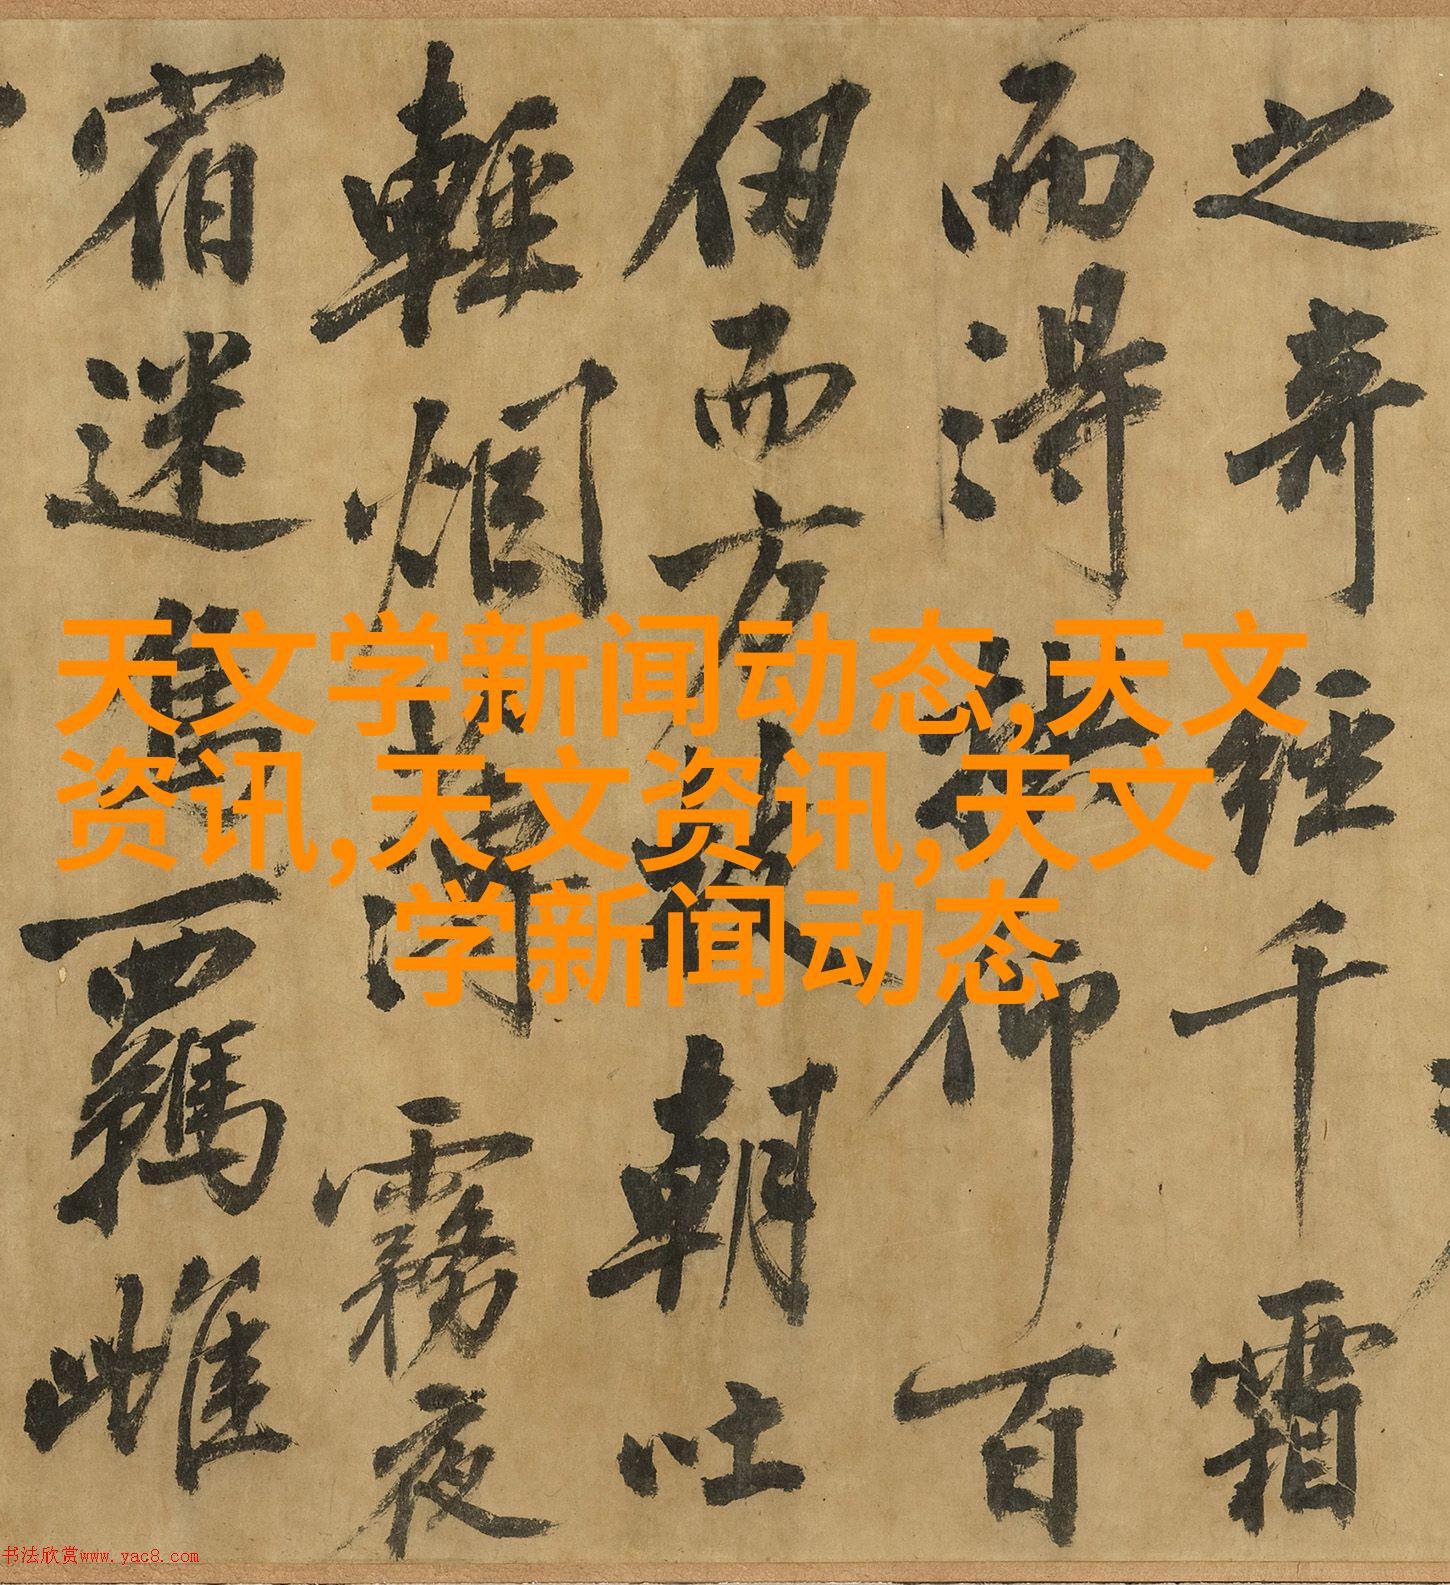 之奇經千霜
而得拱仰百
仞而方枝朝吐
輕烟薄霧夜
宿迷鳥羈雌
天文学新闻动态,天文
资讯,天文资讯,天文
学新闻动态
书法欣赏www.yac8.com